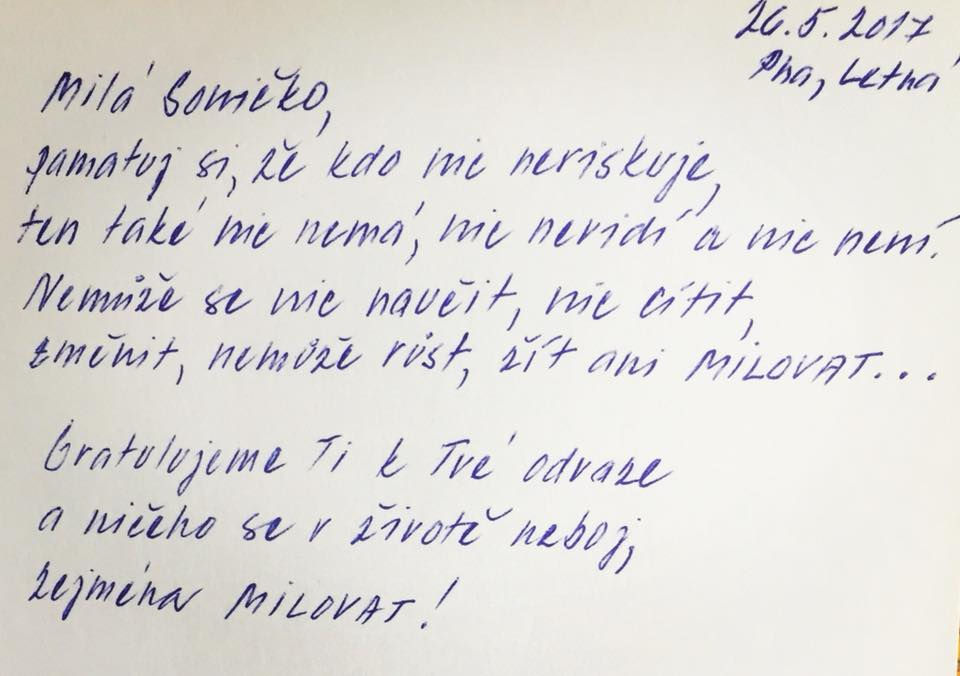 26.5.2017
Pha, Letná
Milá Soničko,
pamatuj si, že kdo nic neriskuje,
ten také nic nemá, nic nevidí a nic není.
Nemůže se nic naučit, nic cítit,
změnit, nemůže růst, žít ani MILOVAT...
Gratulujeme Ti k Tvé odvaze
a ničeho se v životě neboj,
zejména MILOVAT!